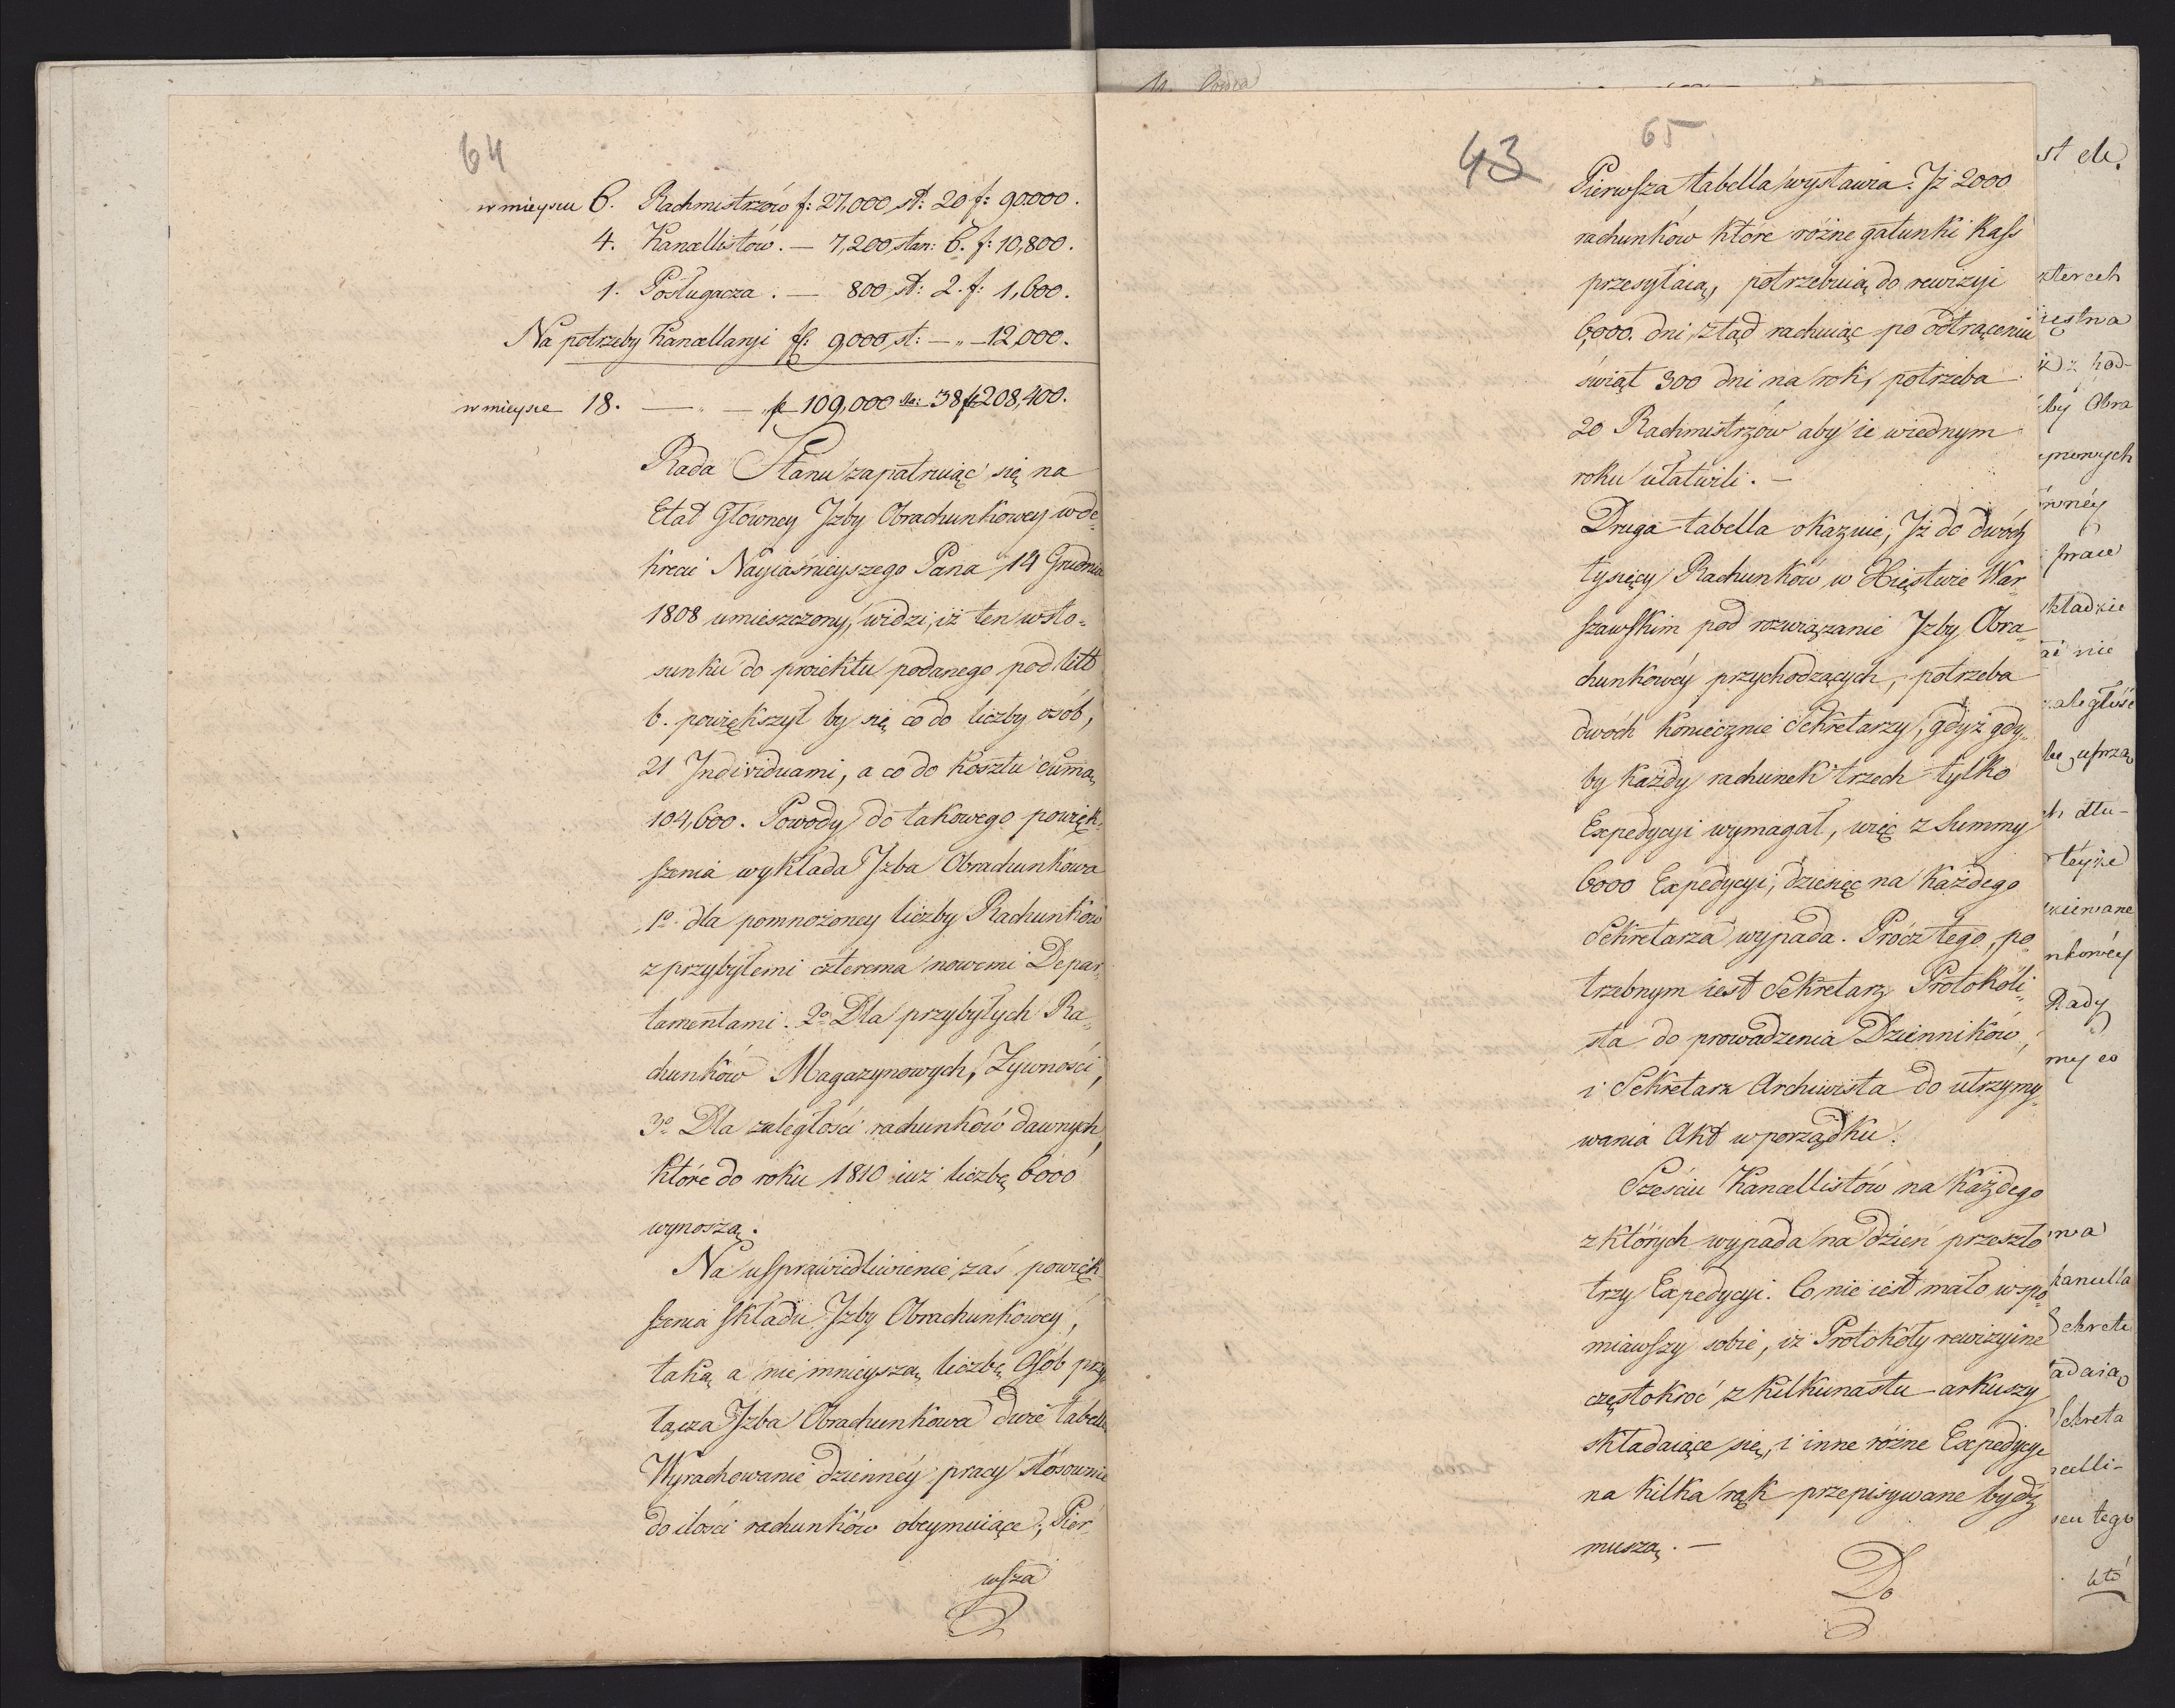 64
w mieyscu 6. Rachmistrzów f: 27,000 st: 20 f: 90.000.
4. Kancellistów. — 7,200 stan: 6. f: 10,800.
1. Posługacza. — 800 st: 2. f: 1,600.
Na potrzeby Kancellaryi fl: 9000 st: — „ — 12,000.
w mieysce 18. — „ — „ fl 109,000 sta: 38 fl 208,400.
Rada Stanu zapatruiąc się na
Etat Główney Jzby Obrachunkowey w de-
krecie Nayiaśnieyszego Pana 14 Grudnia
1808 umieszczony, widzi, iż ten w sto-
sunku do proiektu podanego pod litt
b. powiększył by się co do liczby osób,
21 Jndividuami, a co do kosztu sum̃ą
104,600. Powody do takowego powięk-
szenia wykłada Jzba Obrachunkowa
1º. dla pomnożoney liczby Rachunków
z przybyłemi czterema nowemi Depar-
tamentami. 2º Dla przybyłych Ra-
chunków Magazynowych, Żywności,
3º Dla zaległości rachunków dawnych,
które do roku 1810 iuż liczbę 6000
wynoszą.
Na usprawiedliwienie zaś powięk
szenia składu Jzby Obrachunkowey,
taką a nie mnieyszą liczbę Osób przy
łącza Jzba Obrachunkowa dwie tabelle
Wyrachowanie dzienney pracy stosownie
do ilości rachunków obeymuiące; Pier-
wsza
43
65
Pierwsza tabella wystawia. Jż 2000
rachunków które różne gatunki Kass
przesyłaią, potrzebuią do rewizyi
6,000. dni, ztąd rachuiąc po odtrąceniu
świąt 300 dni na rok, potrzeba
20 Rachmistrzów aby ie w iednym
roku ułatwili. —
Druga tabella okazuie, Jż do dwóch
tysięcy Rachunków w Xięstwie War-
szawskim pod rozwiązanie Jzby Obra-
chunkowéy przychodzących, potrzeba
dwóch koniecznie Sekretarzy, gdyż gdy-
by każdy rachunek trzech tylko
Expedycyi wymagał, więc z Summy
6000 Expedycyi, dziesięć na każdego
Sekretarza wypada. Prócz tego, po-
trzebnym iest Sekretarz Protokóli-
sta do prowadzenia Dzienników,
i Sekretarz Archiwista do utrzymy-
wania Akt w porządku.
Sześciu Kancellistów na każdego
z których wypada na dzień przeszło
trzy Expedycyi. Co nie iest mało wspo-
mniawszy sobie, iż Protokóły rewizyine
częstokroć z kilkunastu arkuszy
składaiące się, i inne różne Expedycye
na kilka rąk przepisywane bydź
muszą. —
Do